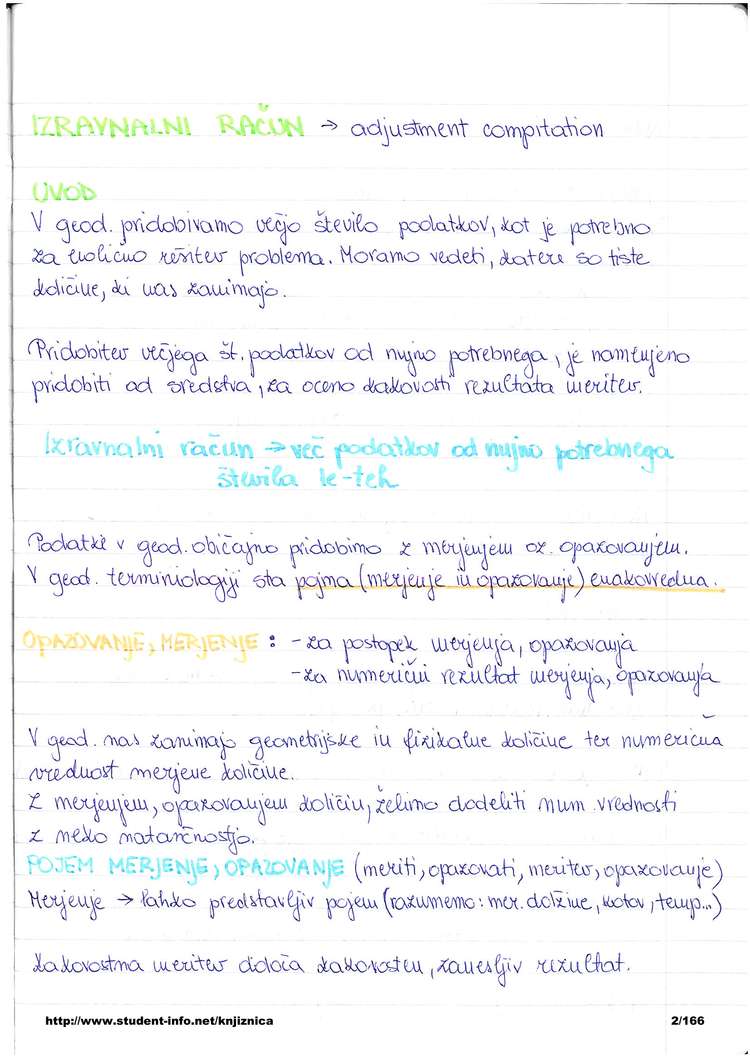 IZRAVNALNI RAČUN → adjustment compitation
UVOD
V geod. pridobivamo večjo število podatkov, kot je potrebno
za enolično rešitev problema. Moramo vedeti, katere so tiste
količine, ki nas zanimajo.
Pridobitev večjega št. podatkov od nujno potrebnega, je namenjeno
pridobiti od sredstva, za oceno kakovosti rezultata meritev.
Izravnalni račun → več podatkov od nujno potrebnega
števila le-teh
Podatki v geod. običajno pridobimo z merjenjem oz. opazovanjem.
V geod. terminiologiji sta pojma (merjenje in opazovanje) enakovredna.
OPAZOVANJE, MERJENJE : - za postopek merjenja, opazovanja
- za numerični rezultat merjenja, opazovanja
V geod. nas zanimajo geometrijske in fizikalne količine ter numerična
vrednost merjene količine.
Z merjenjem, opazovanjem količin, želimo dodeliti num. vrednosti
z neko natančnostjo.
POJEM MERJENJE, OPAZOVANJE (meriti, opazovati, meritev, opazovanje)
Merjenje → lahko predstavljiv pojem (razumemo: mer. dolžine, kotov, temp...)
Kakovostna meritev določa kakovosten, zanesljiv rezultat.
http://www.student-info.net/knjiznica 2/166